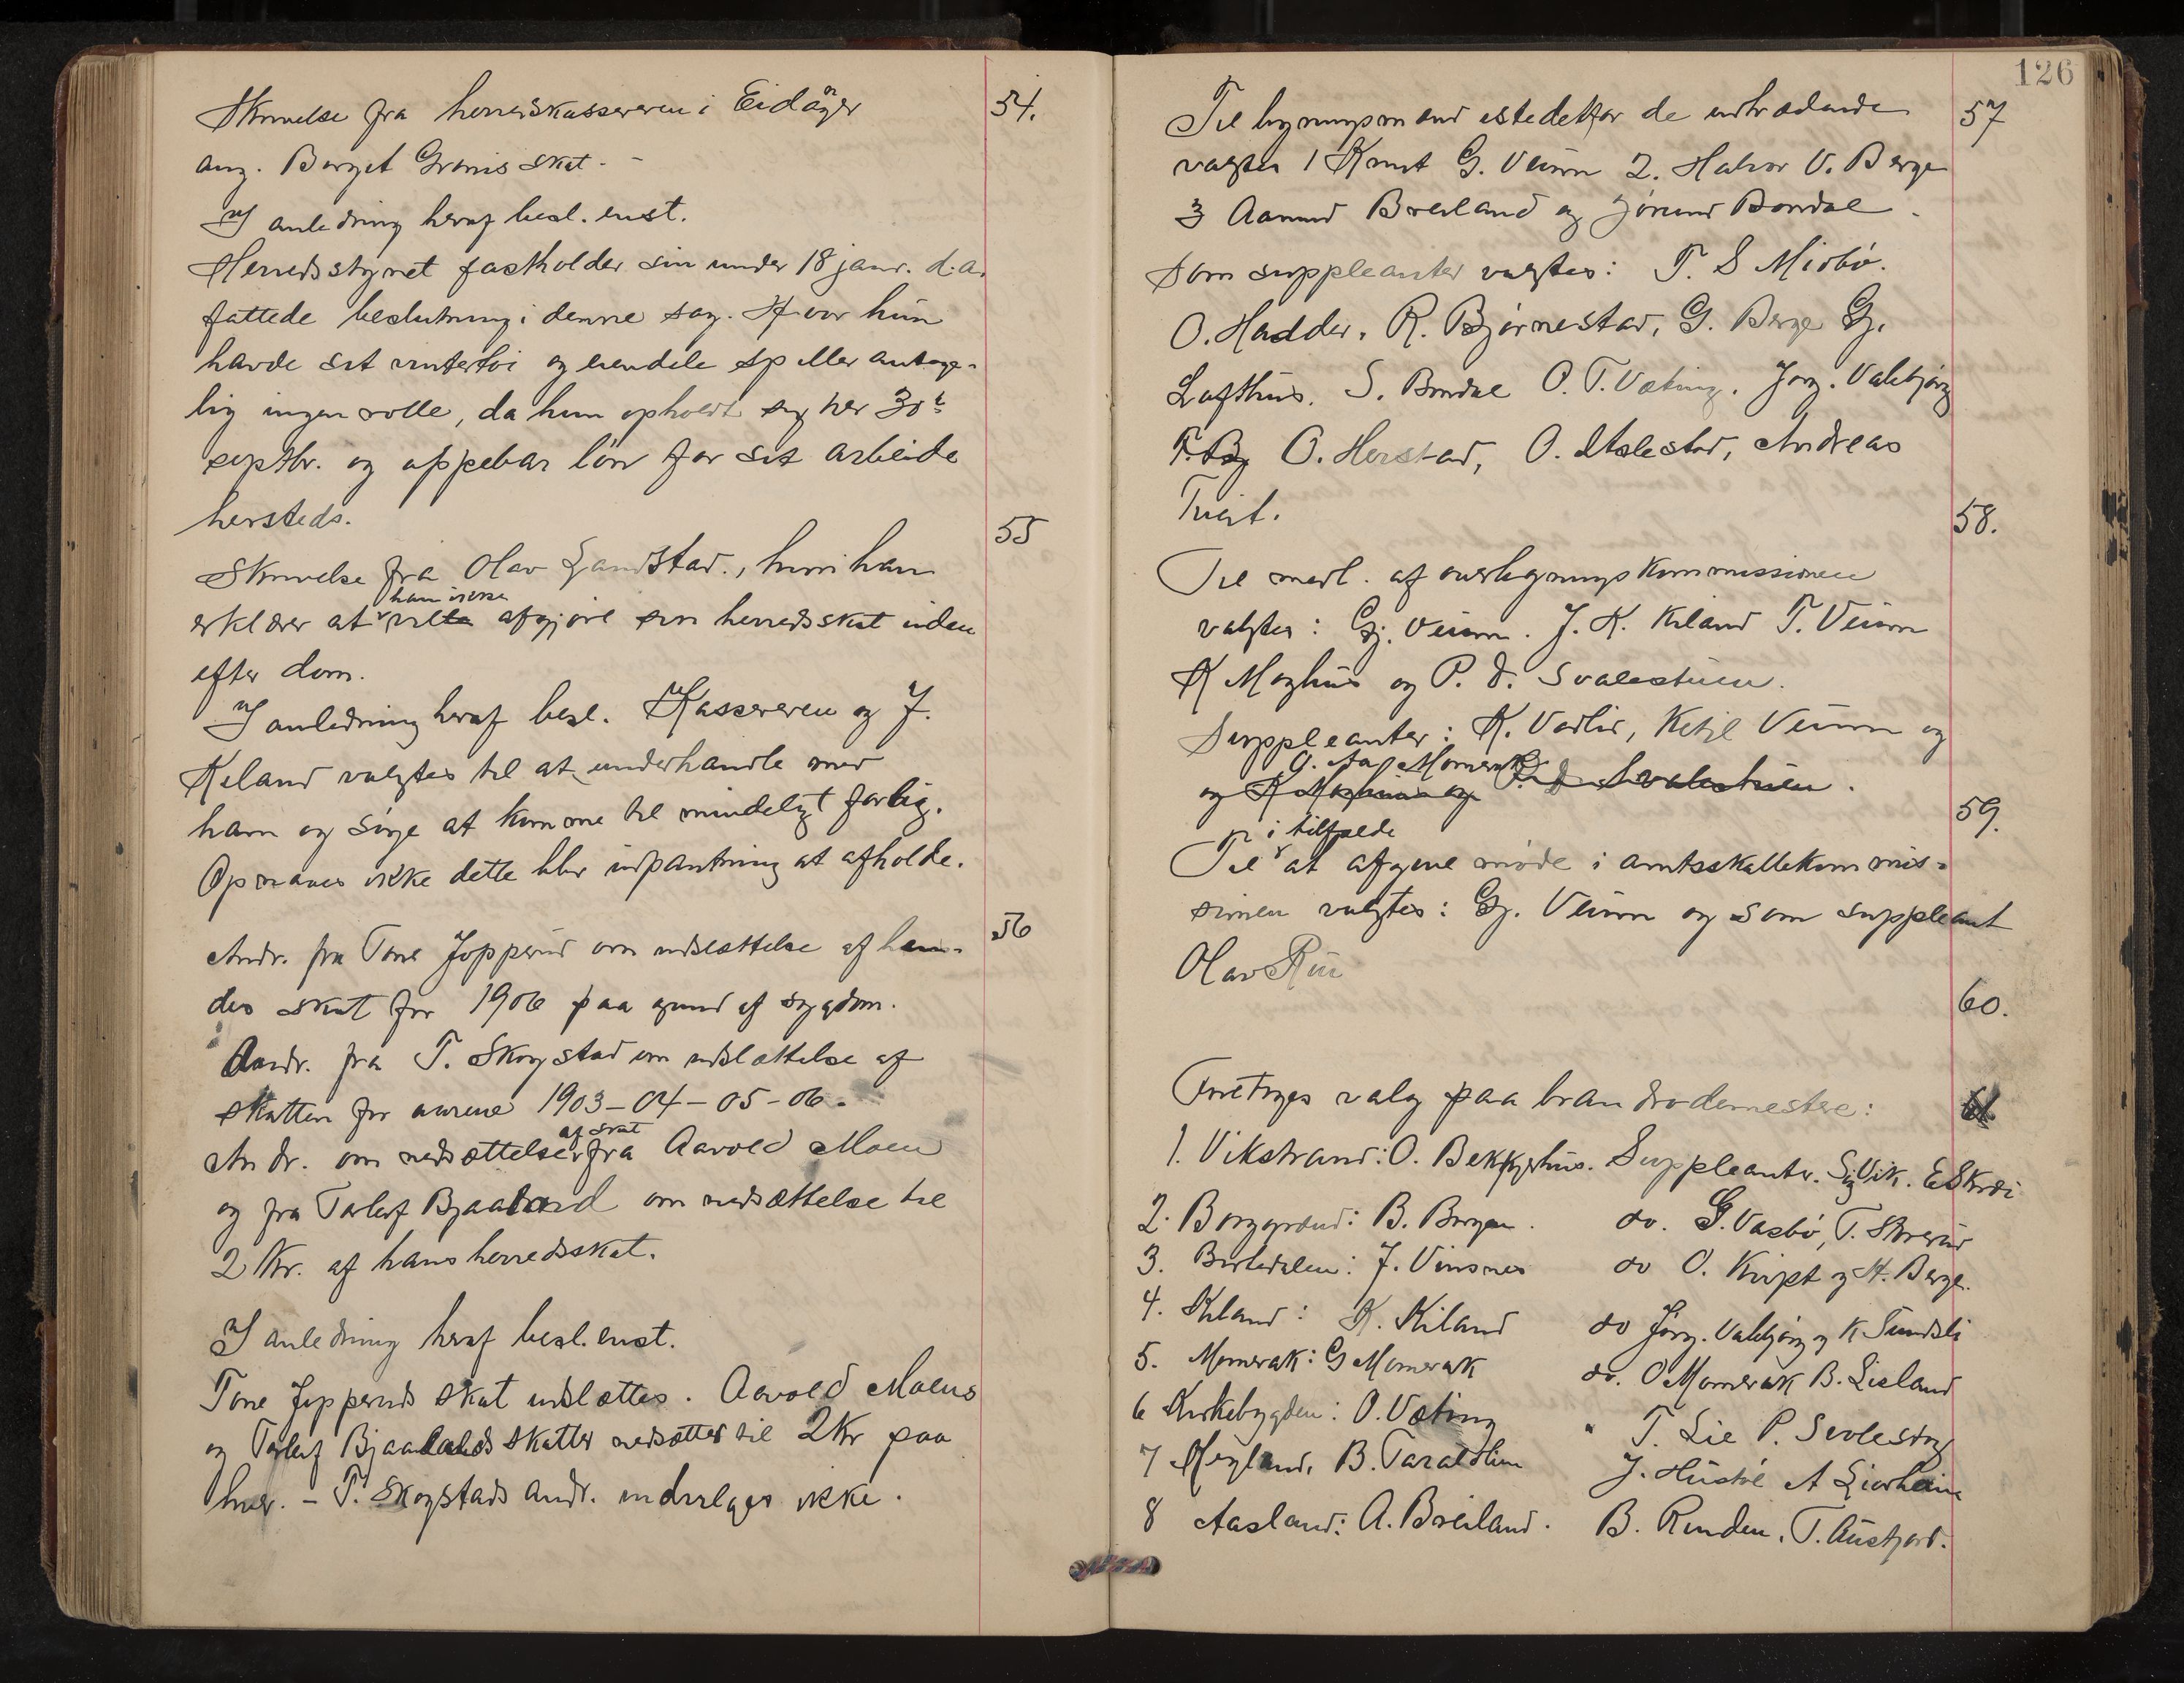 54.
Skrivelse fra herredskassereren i Eidanger
ang. Borgit Gronis skat. -
I anledning heraf besl. enst.
Herredsstyret fastholder sin under 18 janr. d.a.
fattede beslutning i denne sag. Hvor hun
havde sit vintertøi og eiendele spiller antage-
lig ingen rolle, da hun opholdt sig her 30t
septbr. og oppebar løn for sit arbeide
hersteds.
55
Skrivelse fra Olav Sandstad., hvori han
han ikke
erklærer at vil afgjøre sin herredsskat uden
efter dom.
I anledning heraf besl. Kassereren og J.
Kiland valgtes til at underhandle med
ham og søge at komme til mindeligt forlig.
Opnaaes ikke dette blir udpantning at afholde.
56
Andr. fra Tone Jopperud om udslættelse af hen-
des skat for 1906 paa grund af sygdom.
Andr. fra T. Skogstad om udslættelse af
skatten for aarene 1903-04-05-06.
af skat
Andr. om nedsættelse fra Aavold Moen
og fra Torleif Bjaaland om nedsættelse til
2 Kr. af hans herredsskat.
I anledning heraf besl. enst.
Tone Jopperuds skat udslættes. Aavold Moens
og Torleif Bjaalands skatter nedsættes til 2 Kr paa
hver. - T. Skogstads andr. indvilges ikke.
126
57
Til ligningsmænd istedetfor de udtrædende
valgtes 1 Knut G. Veum 2. Halvor V. Berge
3 Aanund Breiland og Jørund Bondal.
Som suppleanter valgtes: T. S Midbø.
O. Hadder, R. Bjørnestad, G. Berge Gj.
Lofthus. S. Bondal O. T. Væting. Jørg. Valebjørg
O. Herstad, O. Malestad, Andreas
Tveit.
58.
Til medl. af overligningskommissionen
valgtes: Gj. Veum. J. K. Kiland T. Veum
K Moghus og P. D. Svalestuen.
Suppleanter: K. Vadlid, Ketil Veum og
G. Aa. Momrak
og K Moghus og P. D. Svalestuen.
59.
i tilfælde
Til at afgive møde i amtsskattekommis-
sionen valgtes: Gj. Veum og som suppleant
Olav Rui
60.
Foretoges valg paa brandrodemestre:
1. Vikstrand: O. Bekkhus. Suppleanter. S. Vik. E Skrei
2. Borggrænd: B. Borgen. do. G. Vasbø, T. Skrerud
3. Birtedalen: J. Vinsnes do O. Kvipt og H. Berge.
4. Kiland: K. Kiland do Jørg. Valebjørg og K Sundsli
5. Momrak: G Momrak do. O Momrak B. Lisland
6 Kirkebygden: O. Væting " T. Lie P.
7 B. Taraldlien J. Hustvet A
8 Aasland: A. Breiland. B. Rinden, T. Austjord.